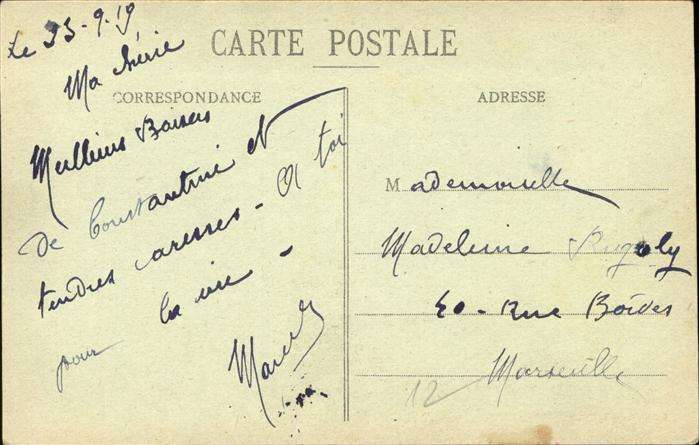 le 23-9-19
CARTE POSTALE
Ma chérie
CORRESPONDANCE
Meilleurs Baisers
de Constantine et
tendres caresses - A toi
pour la vie -
Marcel
ADRESSE
Mademoiselle
Madeleine
40 - Rue
12 Marseille